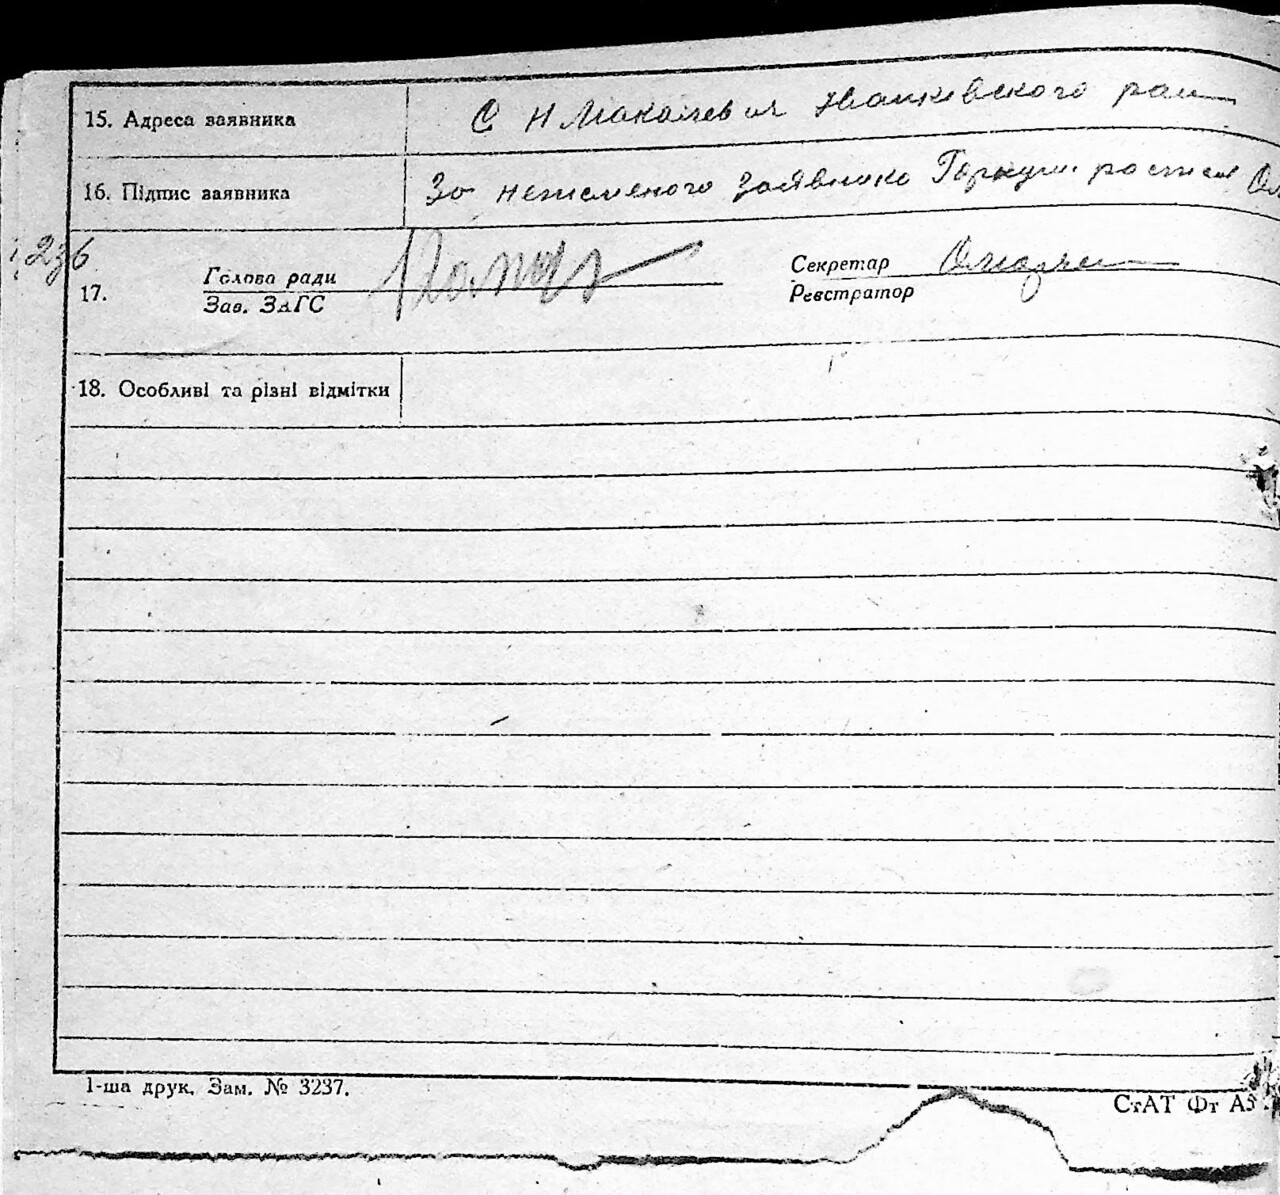 15. Адреса заявника С Н Макалевич Іванківського рай
16. Підпис заявника За неписменого заявника росписал
236
17. Голова ради Секретар
Зав. ЗАГС Реєстратор
18. Особливі та різні відмітки
1-ша друк. Зам. № 3237.
СтАТ Фт А5